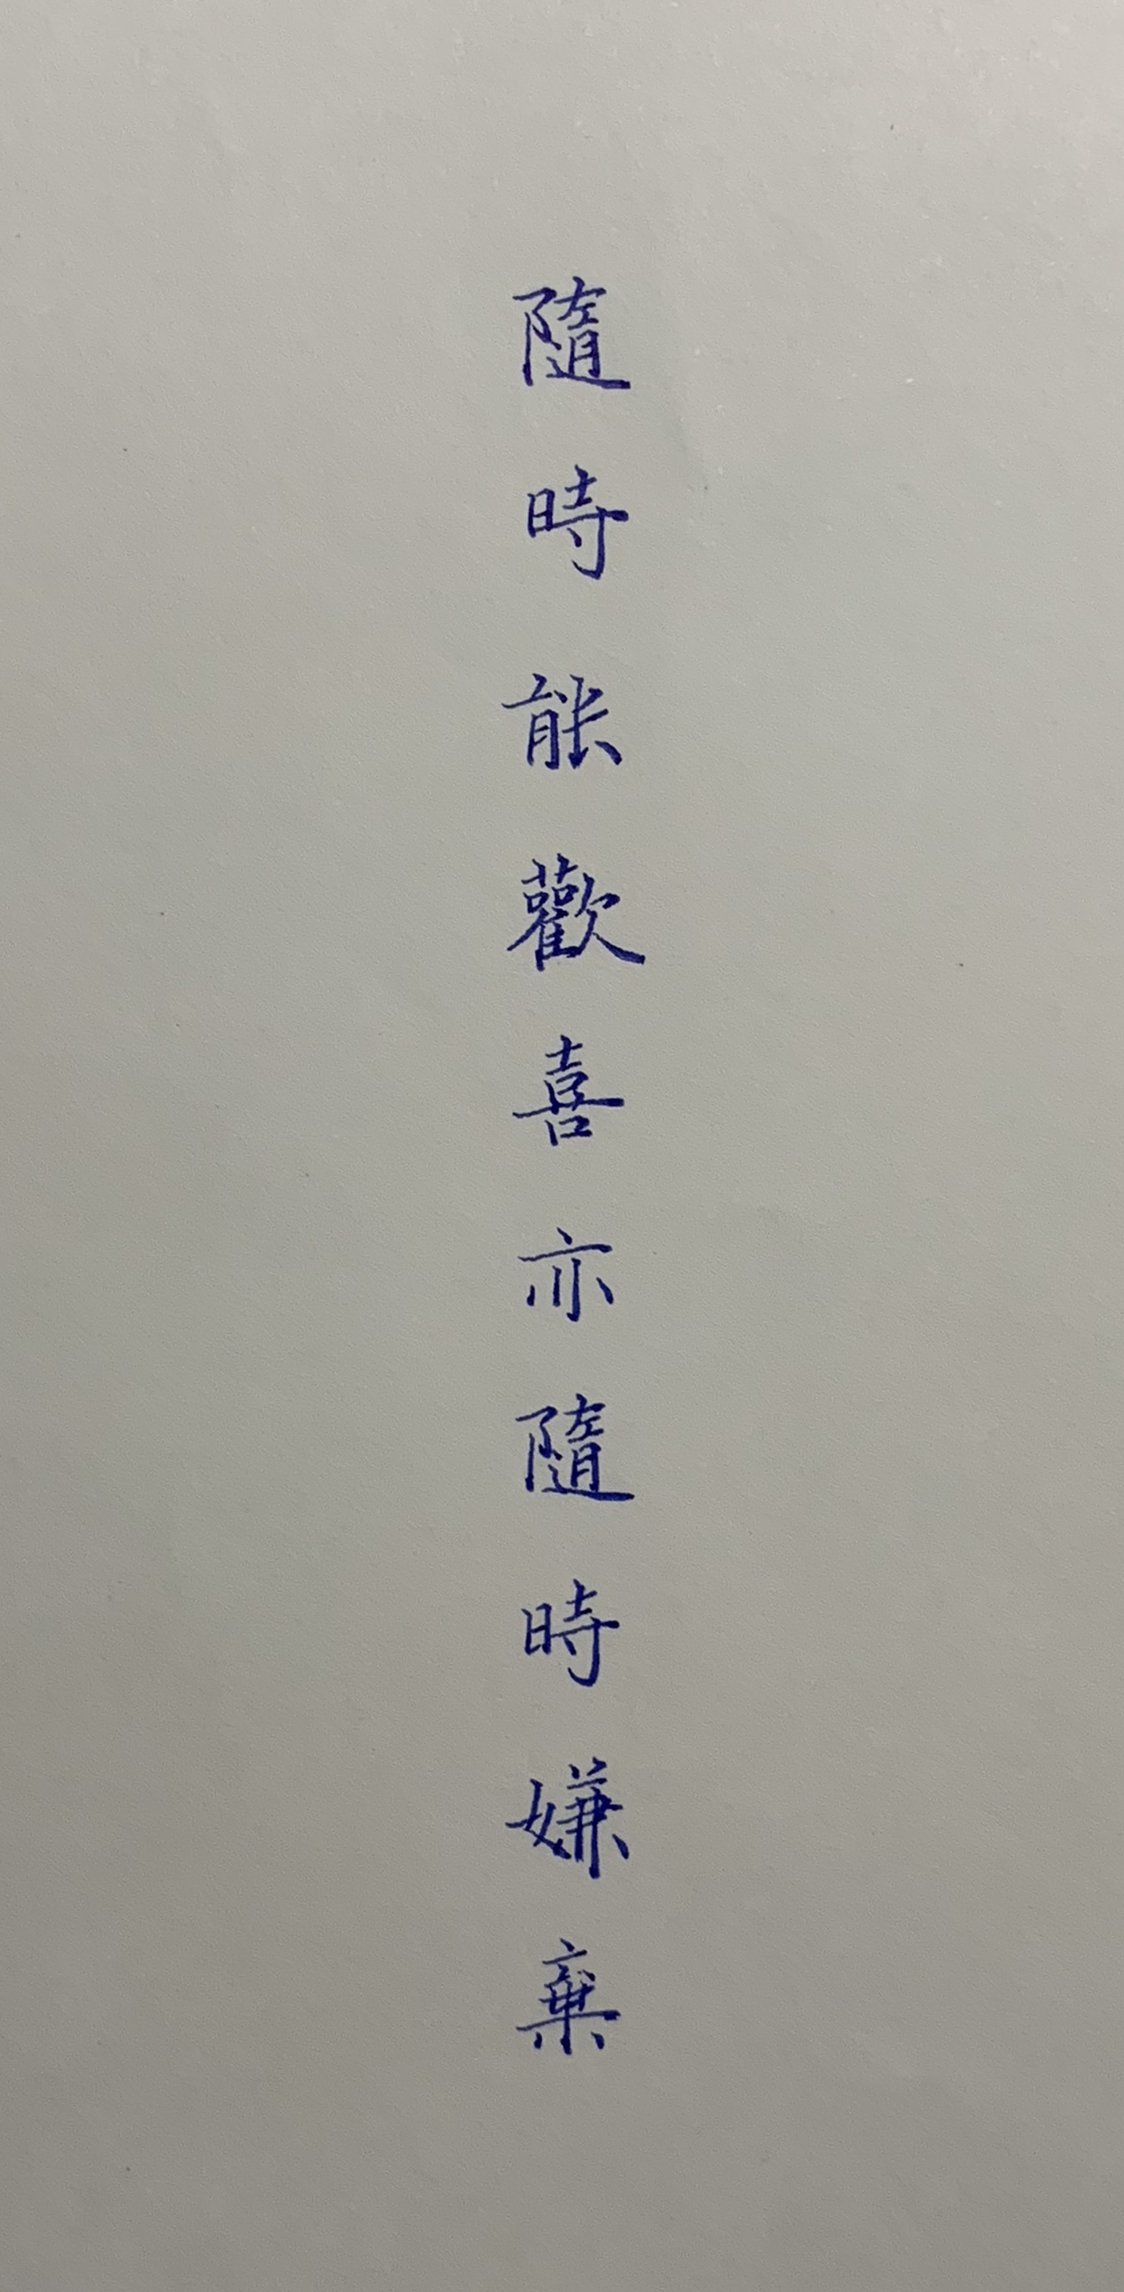 隨時能歡喜亦隨時嫌棄